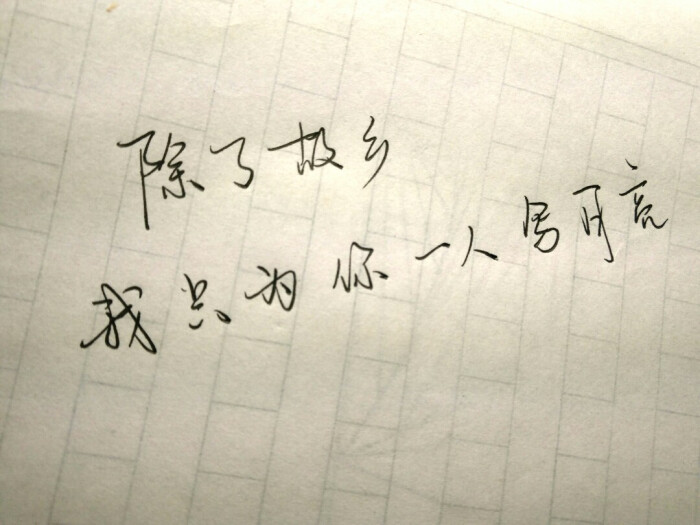 除了故乡
我只为你一人写月亮